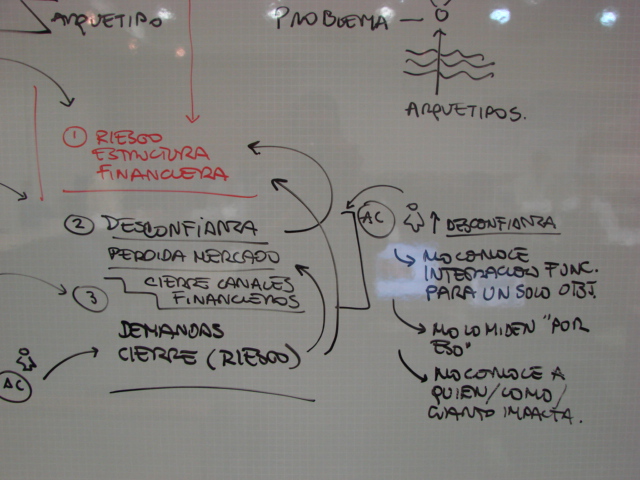 ARQUETIPO
PROBLEMA
ARQUETIPOS.
1 RIESGO
ESTRUCTURA
FINANCIERA
2 DESCONFIANZA
PERDIDA MERCADO
3 CIERRE CANALES
FINANCIEROS
DEMANDAS
CIERRE (RIESGO)
AC
AC ↑ DESCONFIANZA
NO CONOCE
INTEGRACION FUNC.
PARA UN SOLO OBJ.
NO LO MIDEN "POR
ESO"
NO CONOCE A
QUIEN/COMO/
CUANTO IMPACTA.